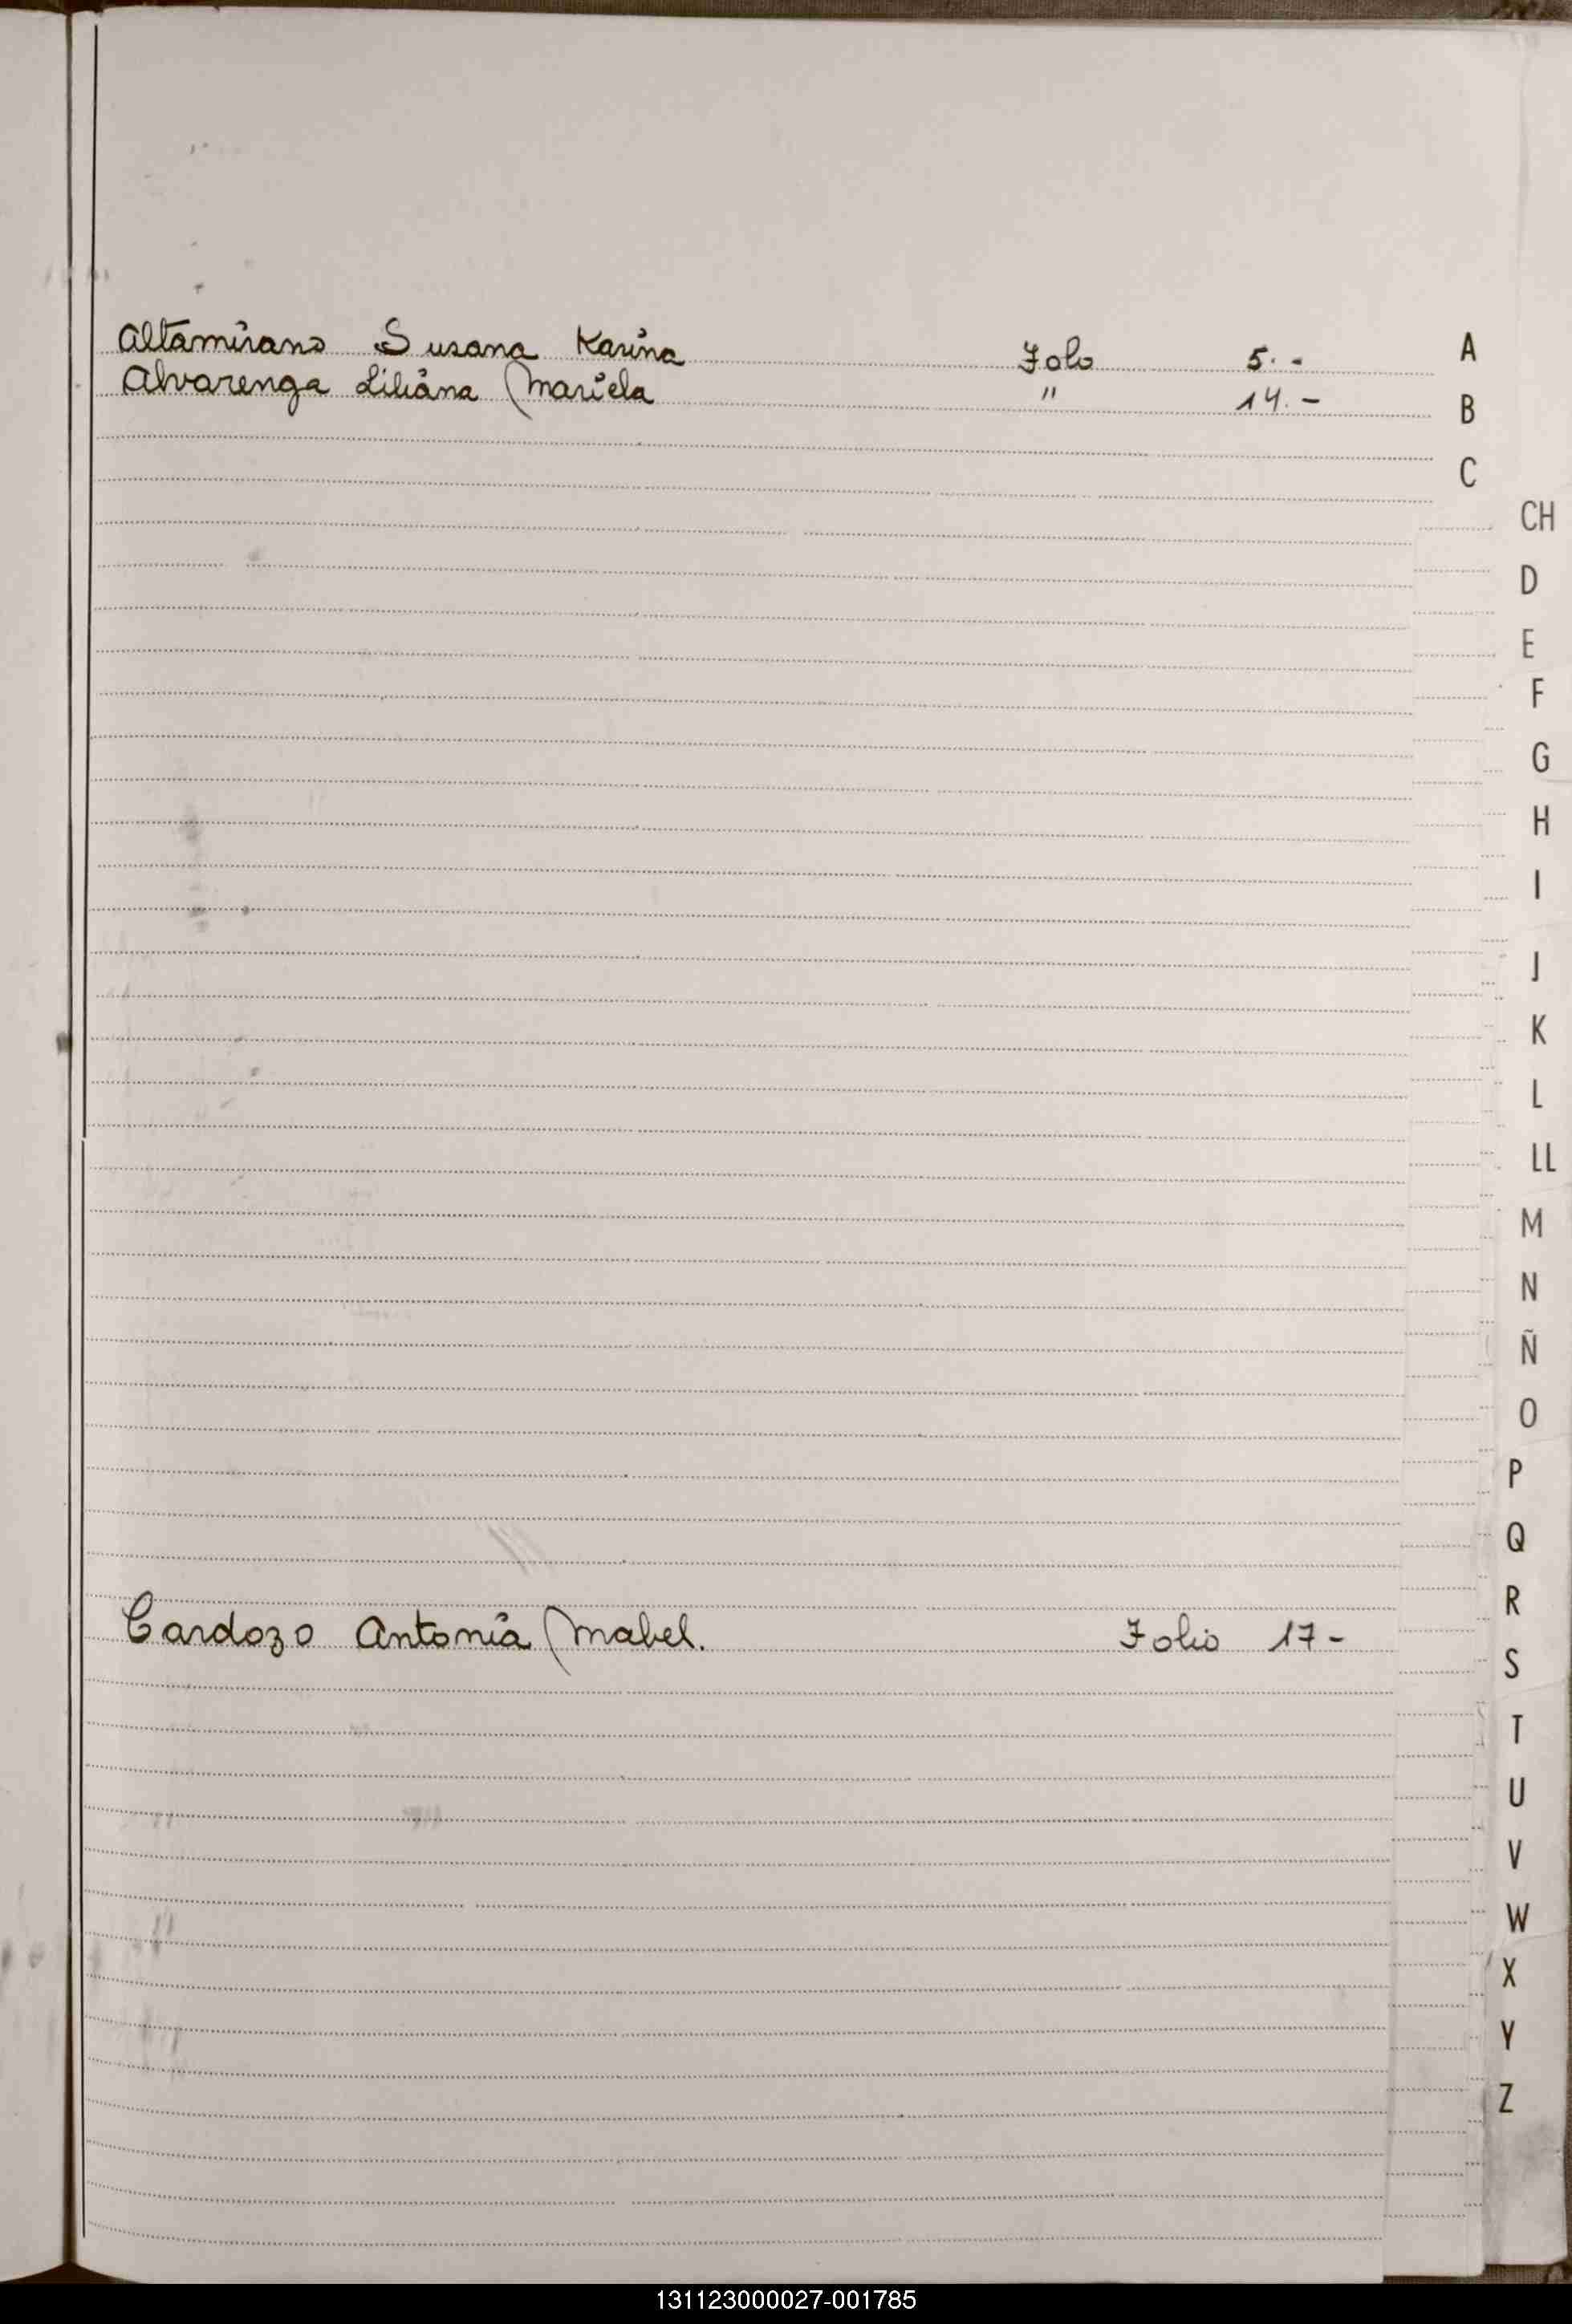 Altamirano Susana Karina Folo 5.-
Alvarenga Liliana Mariela " 14.-
Cardozo Antonia Mabel. Folio 17-
A
B
C
CH
D
E
F
G
H
I
J
K
L
LL
M
N
Ñ
O
P
Q
R
S
T
U
V
W
X
Y
Z
131123000027-001785